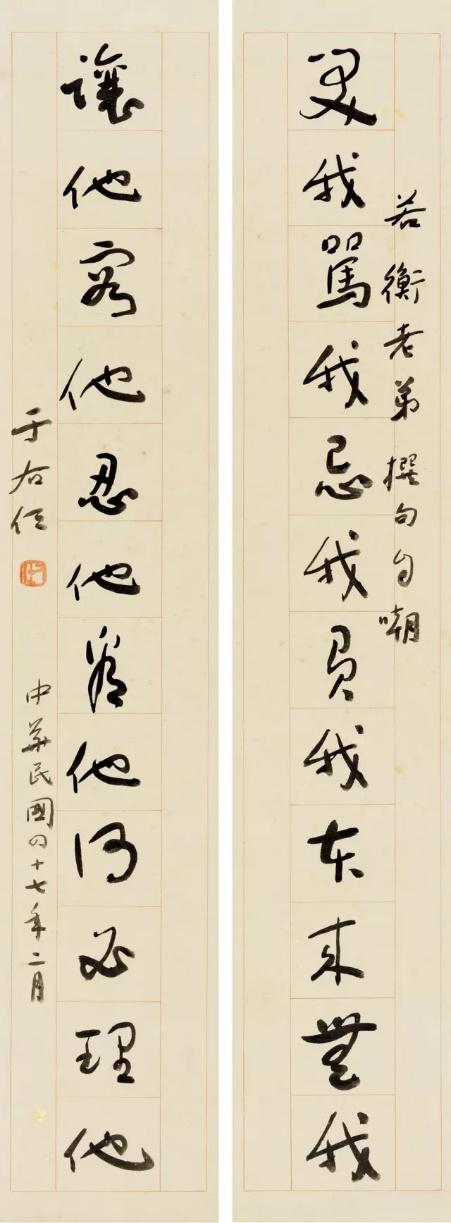 若衡老弟撰句自嘲
我罵我忌我負我本來無我
讓他容他忍他他何必理他
于右任
中華民國四十七年二月